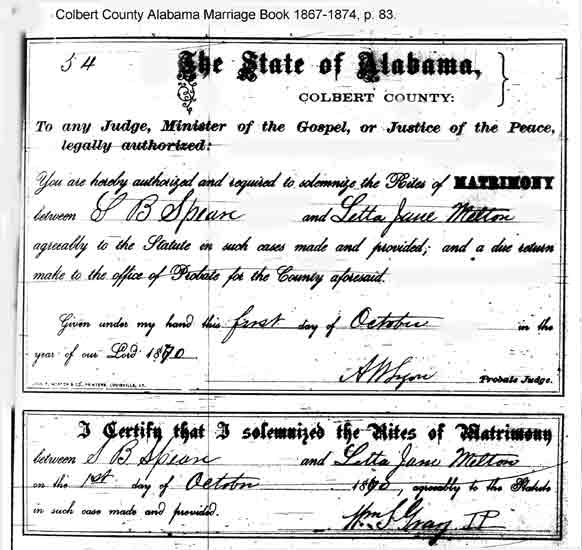 Colbert County Alabama Marriage Book 1867-1874, p. 83.
54
The State of Alabama,
COLBERT COUNTY:
To any Judge, Minister of the Gospel, or Justice of the Peace,
legally authorized:
You are hereby authorized and required to solemnize the Rites of MATRIMONY
between S B Spear and Letta Jane Melton
agreeably to the Statute in such cases made and provided; and a due return
make to the office of Probate for the County aforesaid.
Given under my hand this first day of October in the
year of our Lord 1870
A W Lyon Probate Judge.
JNO. P. MORTON & CO., PRINTERS, LOUISVILLE, KY.
I Certify that I solemnized the Rites of Matrimony
between S B Spear and Letta Jane Melton
on the 1st day of October 1870, agreeably to the Statute
in such case made and provided.
Wm S Gray J P